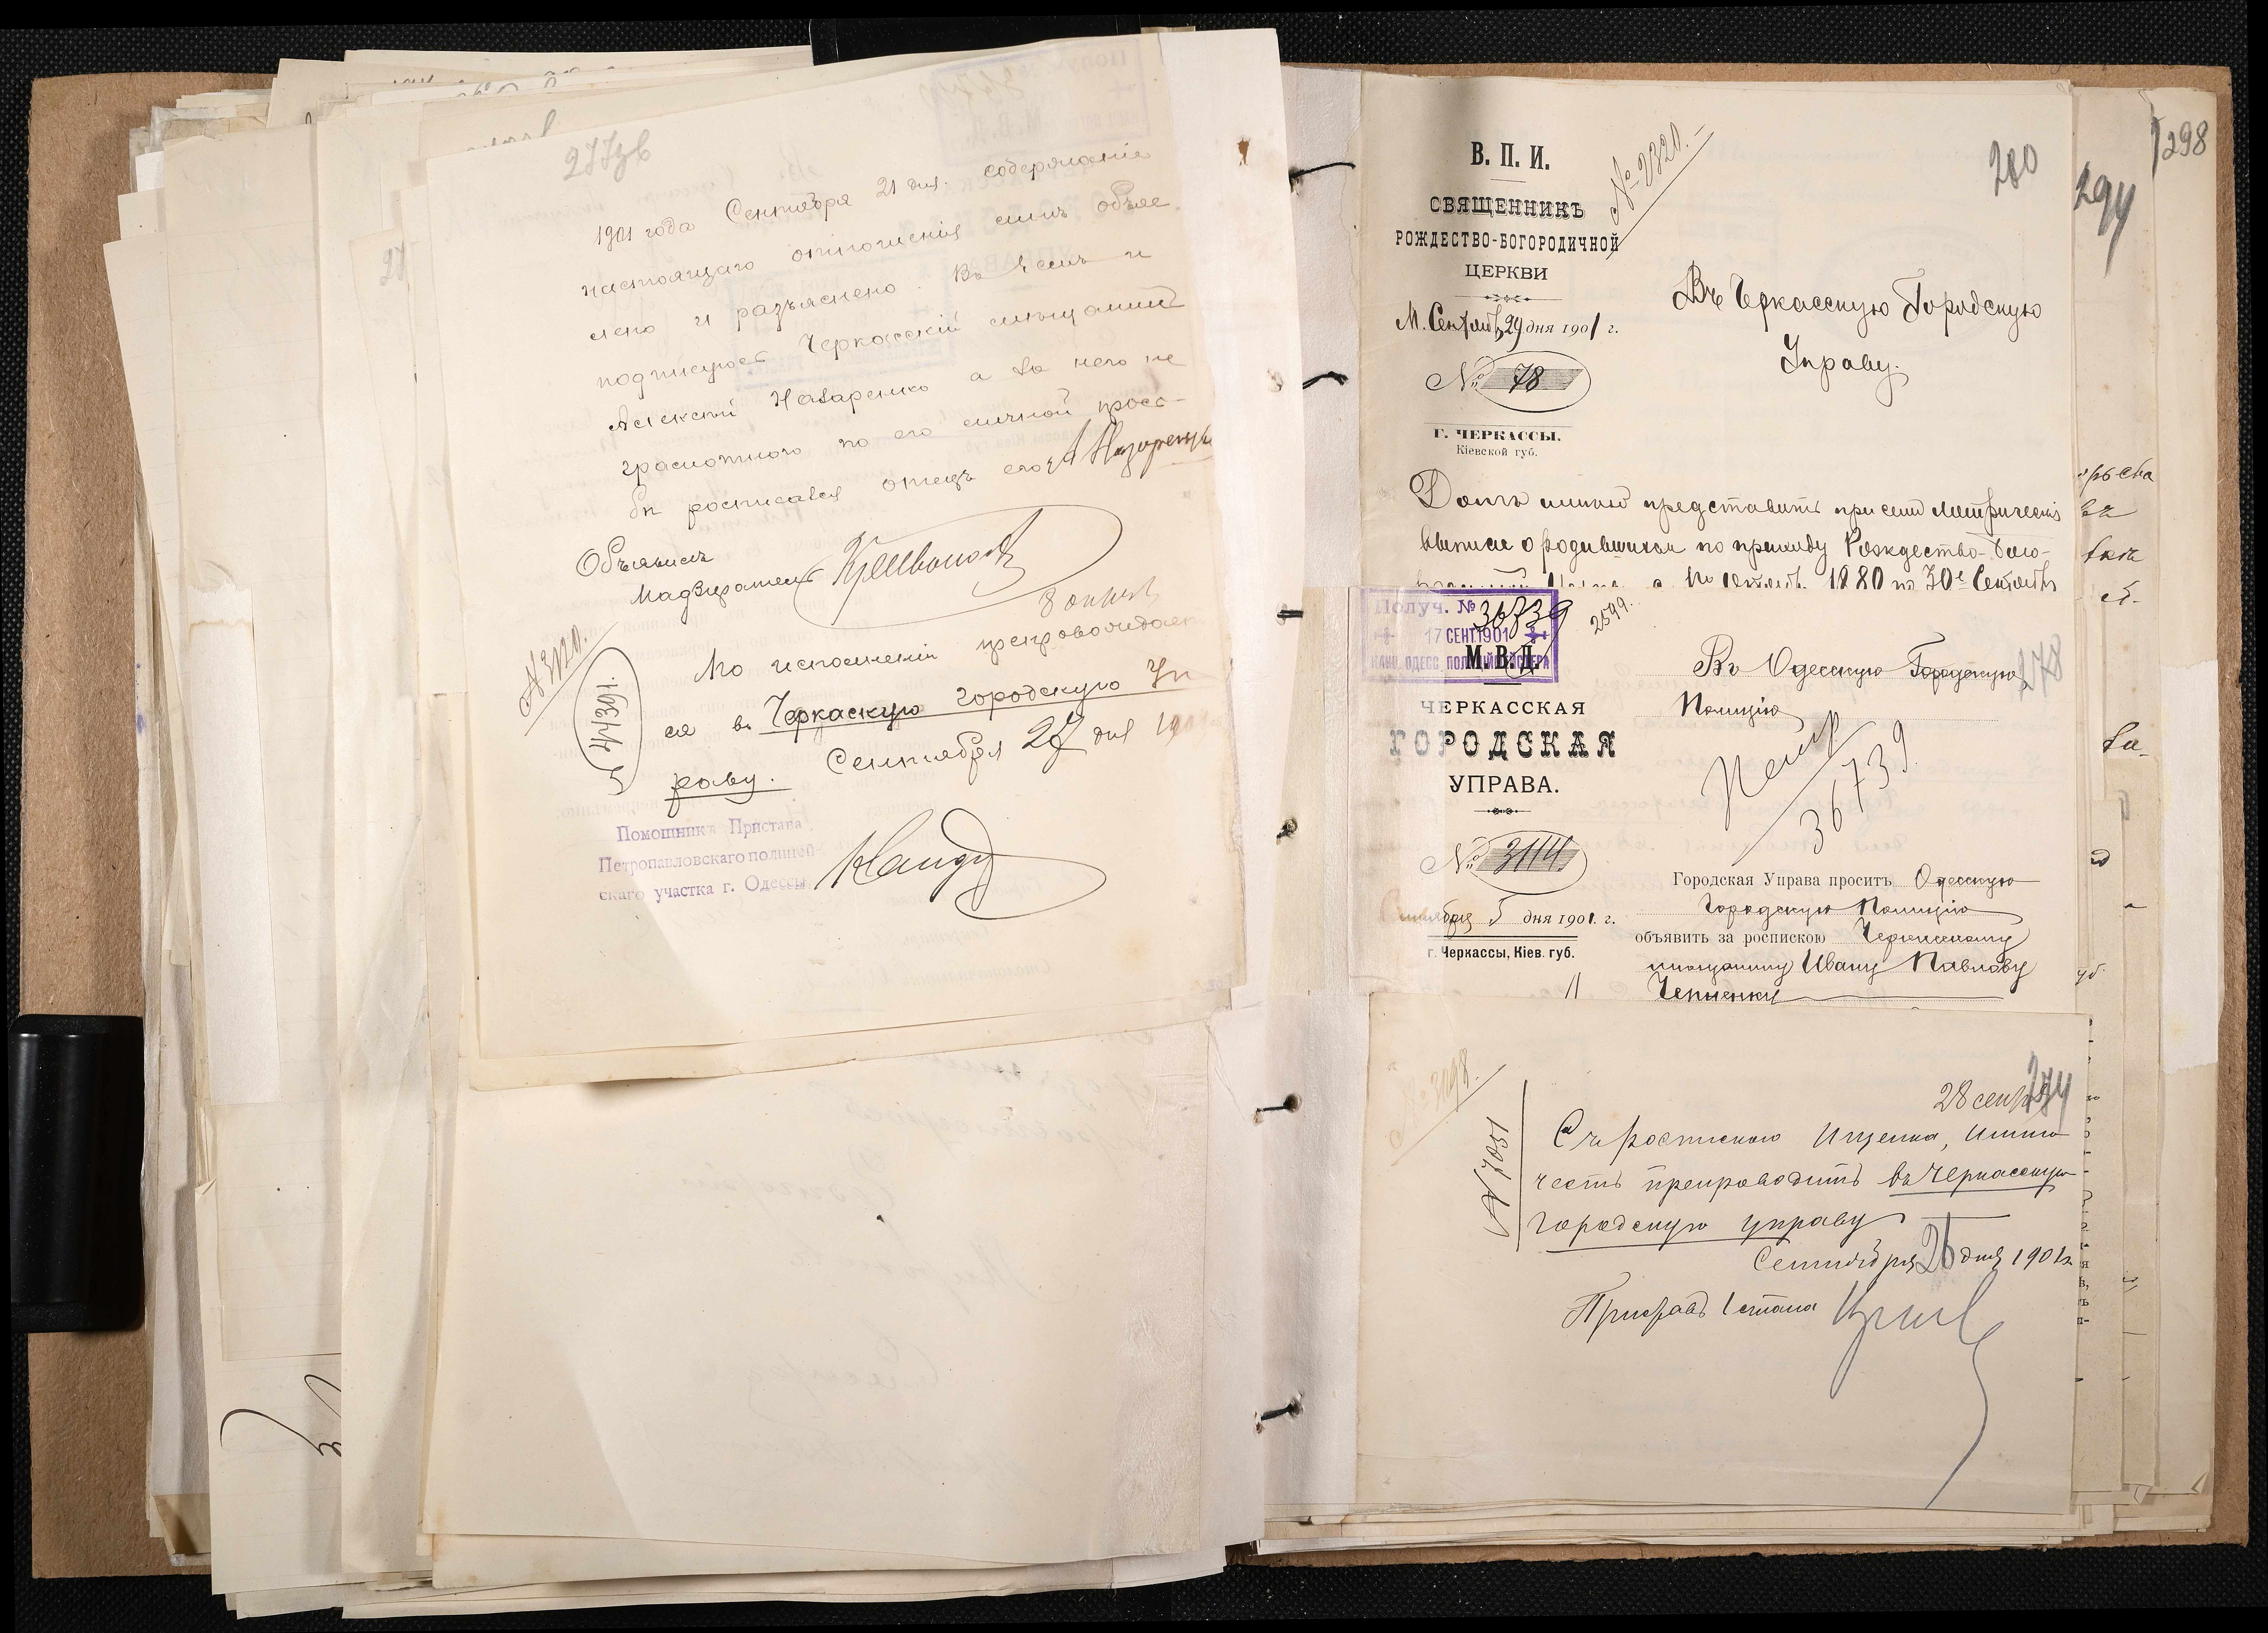 277зв
1901 года Сентября 21 дня. содержание
настоящаго отношения мнъ объяв
лено и разъяснено. Въ чемъ и
подписуюсь Черкасскій мещанинъ
Алексей Назаренко а за него не
грамотного по его личной прось-
бы росписался отецъ его А Назаренко
Объявилъ
Надзиратель
8 октяб
№ 3120.
По исполнении препровождает
ся въ Черкаскую городскую Уп
раву. Сентября 27 дня 1901
Помощникъ Пристава
Петропавловскаго полицей-
скаго участка г. Одессы
В. П. И.
СВЯЩЕННИКЪ
РОЖДЕСТВО-БОГОРОДИЧНОЙ
ЦЕРКВИ
М. Сентяб 29 дня 1901 г.
№ 78
Г. ЧЕРКАССЫ.
Кіевской губ.
280
Въ Черкасскую Городскую
Управу.
Долгъ имею представить при семъ метрическія
выписи о родившихся по приходу Рождество-Бого-
1880 по 30е Сентябр
Получ. № 36739
17 СЕНТ.1901
КАНЦ. ОДЕСС. ПОЛИЦІЙМЕЙСТЕРА
М. В. Д.
2599.
ЧЕРКАССКАЯ
ГОРОДСКАЯ
УПРАВА.
№ 3114
Сентября 5 дня 1901. г.
г. Черкассы, Кіев. губ.
278
Въ Одесскую Городскую
Полицію
36739
Городская Управа проситъ Одесскую
Городскую Полицію
объявить за роспискою Черкасскому
мещанину Ивану Павлову
№ 3098.
28 сентяб
274
№ 7051
Съ роспискою Ищенка, имею
честь препроводить въ Черкасскую
городскую управу
Сентября 26 дня 1901 г.
Приставъ 1 стана
294
298